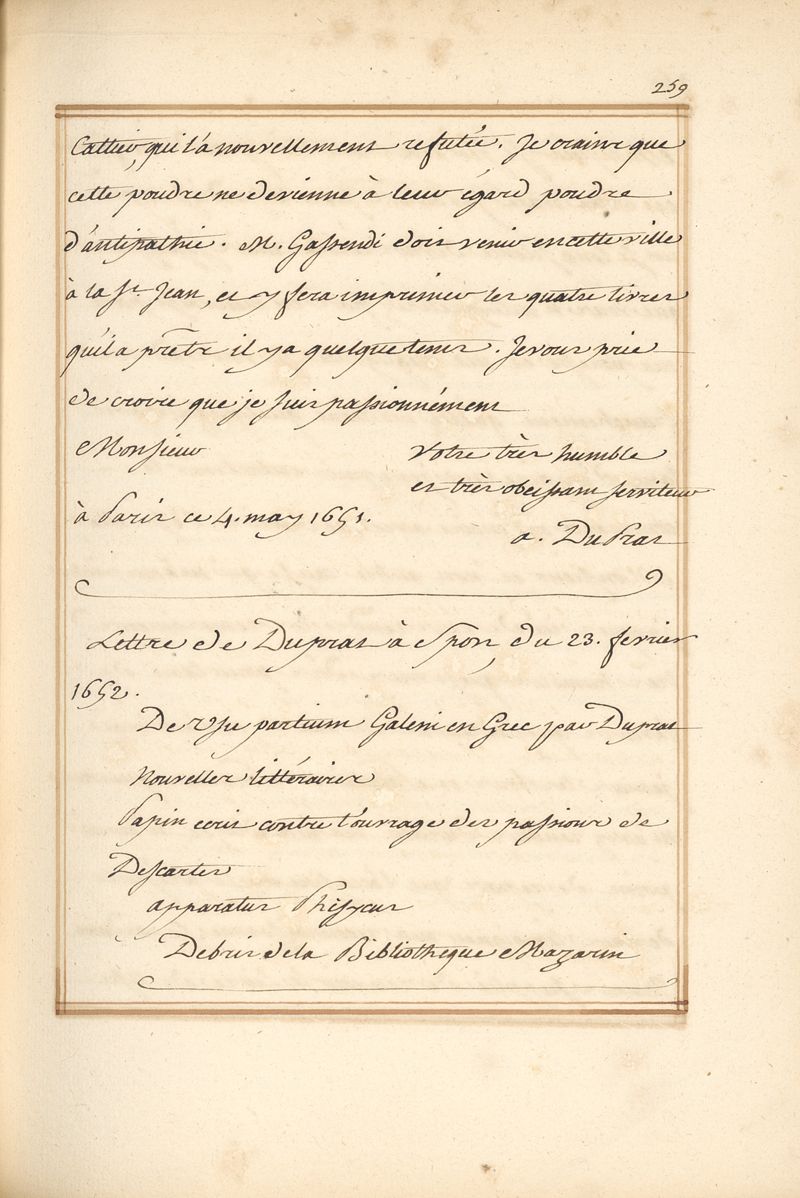 259
Cattier, qui l'a nouvellement refutée. Je crains que
cette poudre ne devienne à leur égard poudre
d'antipathie. M. Gassendi doit venir en cette ville
à la St. Jean, et y fera imprimer les quatre livres
qu'il a prêts il y a quelque tems. Je vous prie
de croire que je suis passionnément
Monsieur
Votre très humble
et très obeissant serviteur
à Paris ce 4. may 1651.
a. Du Prat
Lettre de Duprat à Spon, du 23. fevrier
1652.
De Usu partium Galeni en Grec par Duprat
Nouvelles littéraires
Papin ecrit contre l'ouvrage des passions de
Descartes
apparatus Phisicus
Debris de la Bibliotheque Mazarin